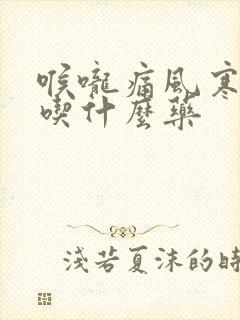 喉嚨痛風寒
喫什麼藥
淺若夏沫的時